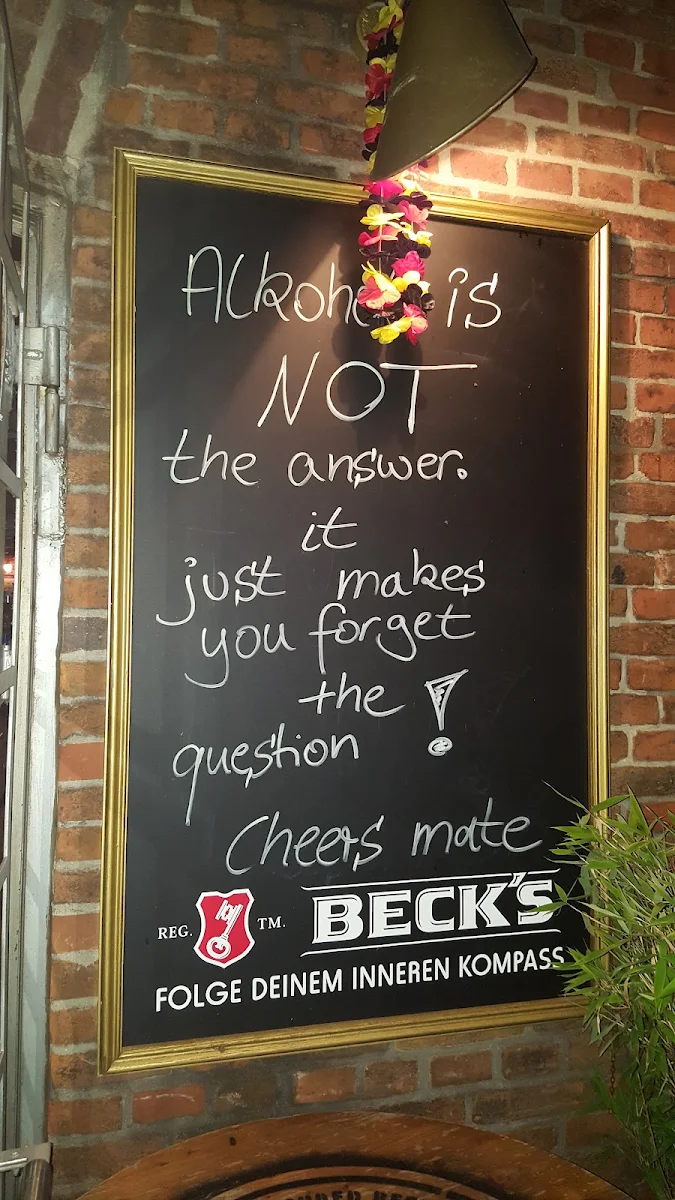 Alkohol is
NOT
the answer.
it
just makes
you forget
the
question !
Cheers mate
REG. TM. BECK'S
FOLGE DEINEM INNEREN KOMPASS